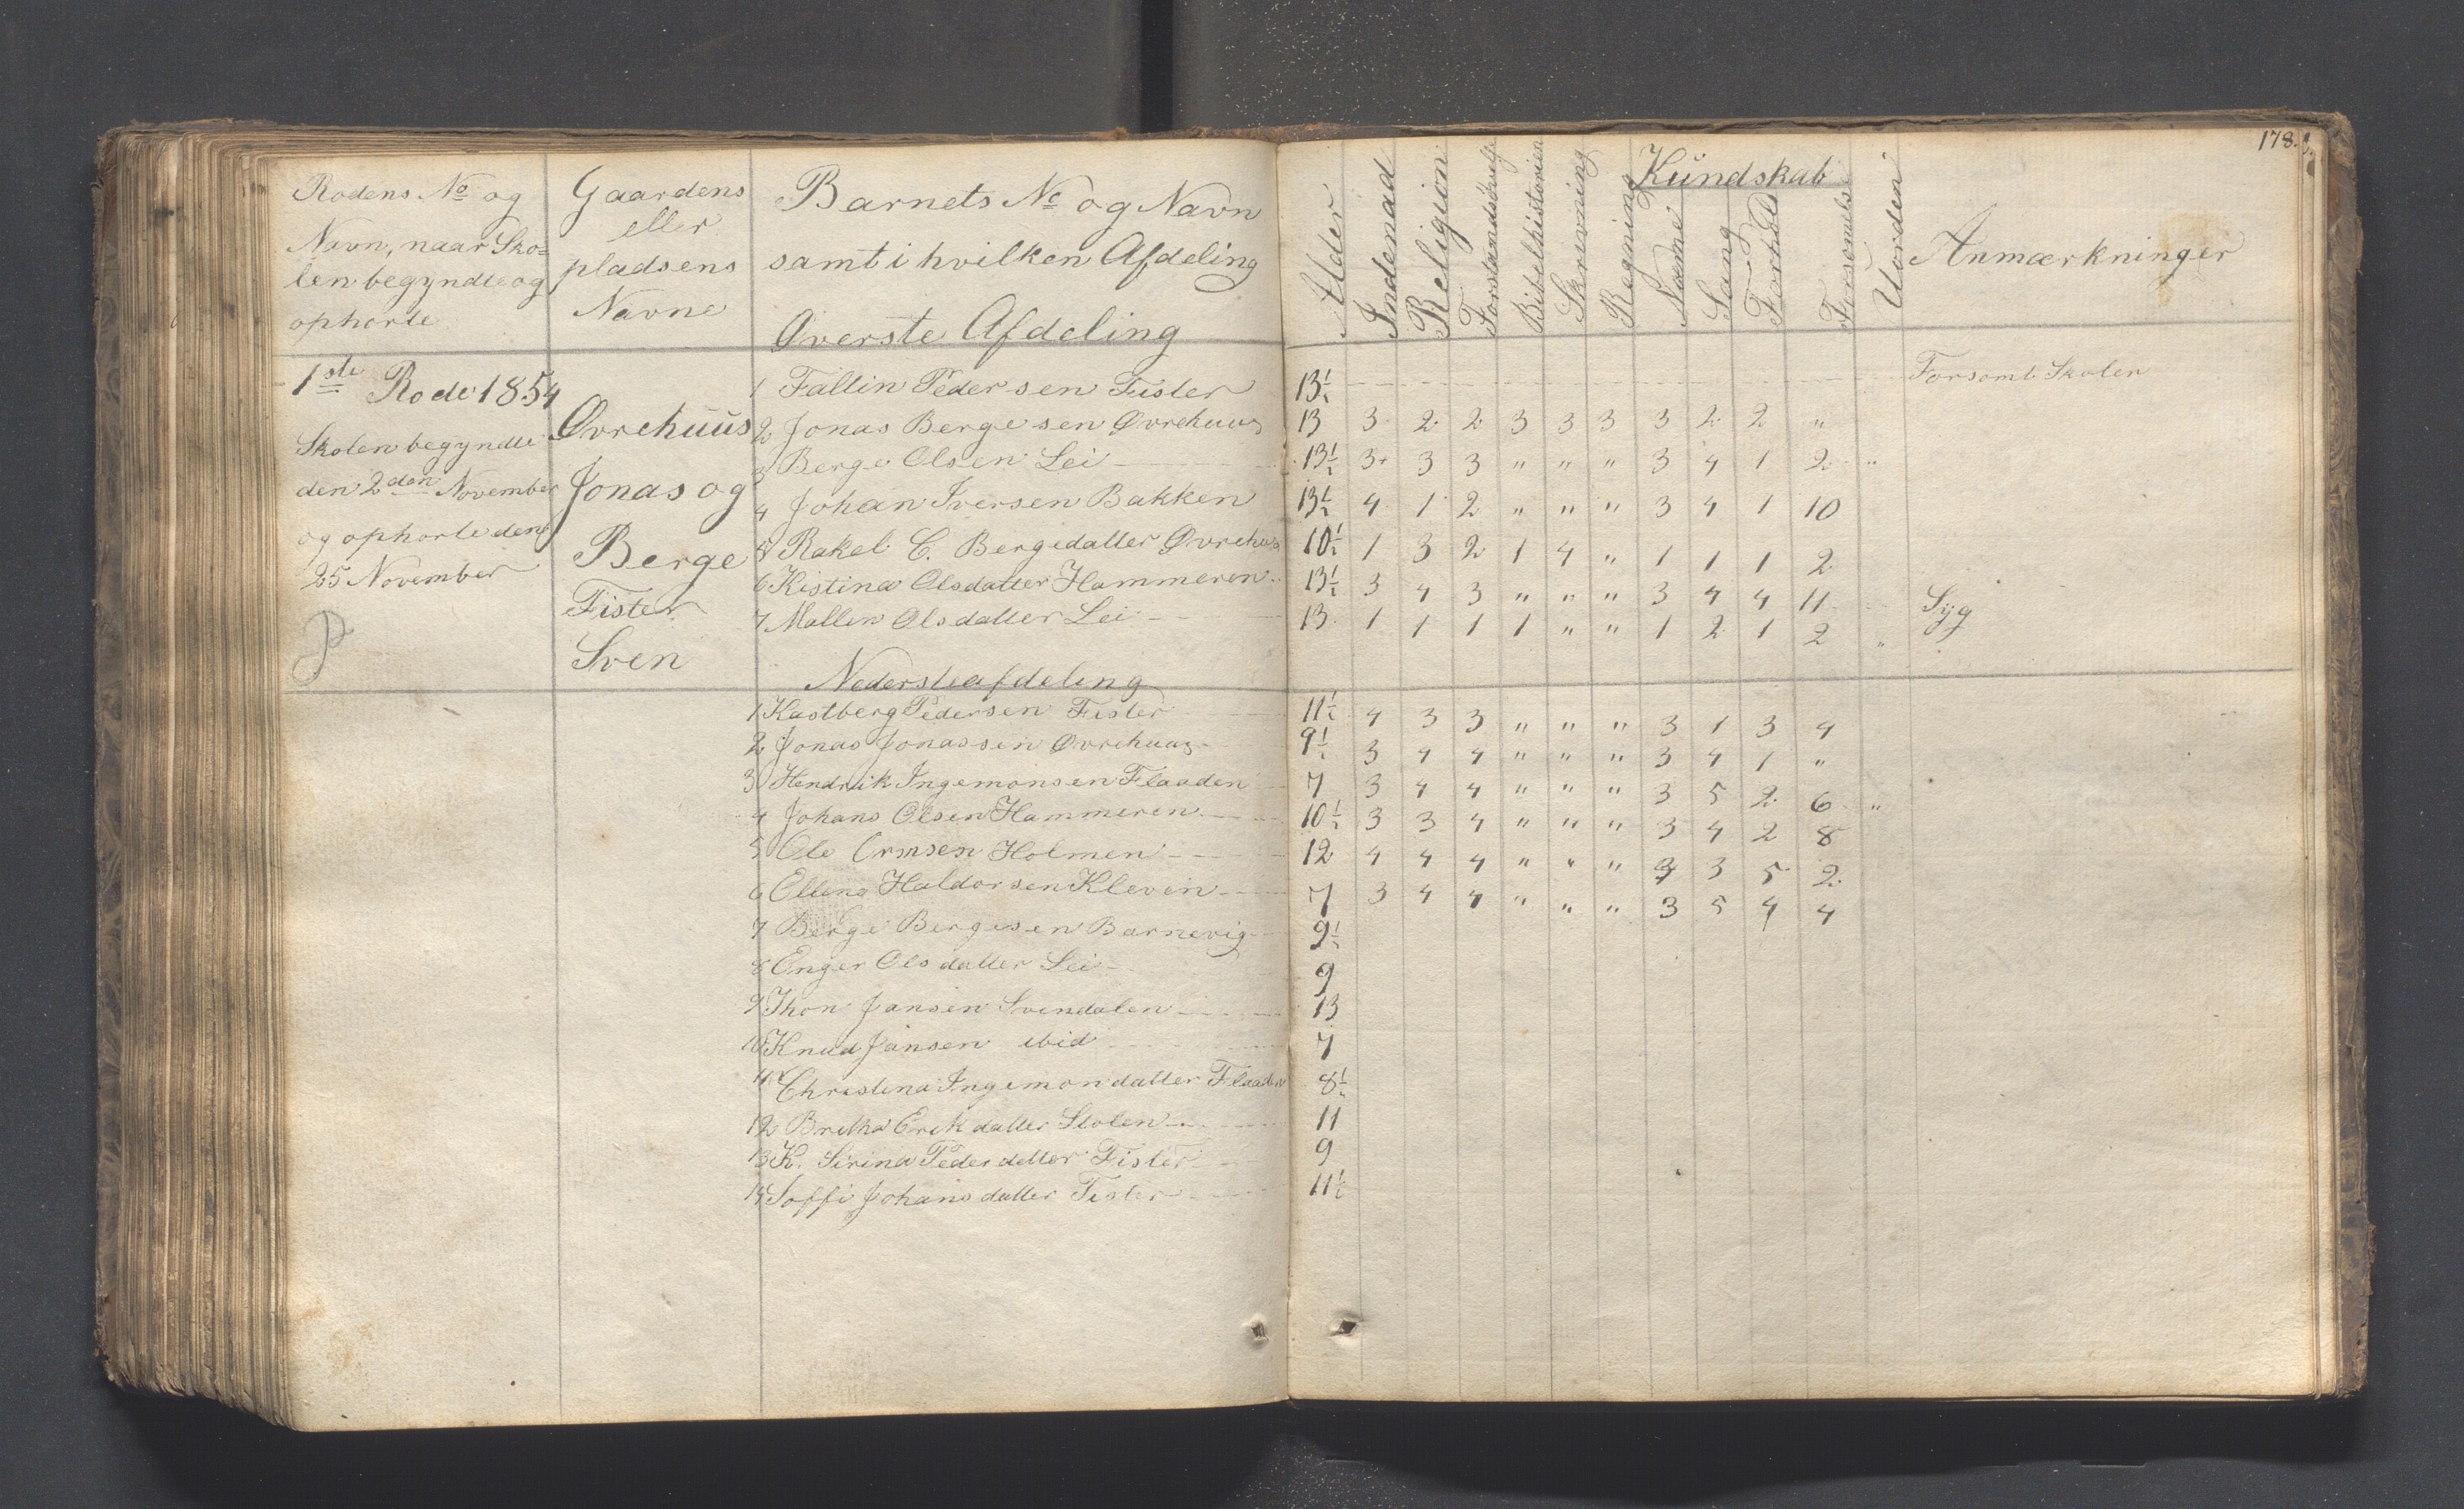 178.
Rodens No og
Navn, naar Sko=
len begyndte og
ophørte
Gaardens
eller
pladsens
Navne
Barnets No og Navn
samt i hvilken Afdeling
Øverste Afdeling
Alder
Indenad
Religion
Forstandsøvelse
Bibelhistorien
Skrivning
Regning
Kundskab
Naame
Sang
Forhold
Forsømmelse
Uorden
Anmærkninger
1ste Rode 1854
Skolen begyndte
den 2den November
og ophorte den
25 November
P
Øvrehuus
Jonas og
Berge
Fister
Sven
1 Fallin Pedersen Fister 13½ Forsomt Skolen
2 Jonas Bergesen Øvrehuus 13 3 2 2 3 3 3 3 2 2 "
3 Berge Olsen Lei 13½ 3+ 3 3 " " " 3 4 1 2 "
4 Johan Iversen Bakken 13½ 4 1 2 " " " 3 4 1 10
5 Rakel C. Bergedatter Øvrehus 10½ 1 3 2 1 4 " 1 1 1 2
6 Kistina Olsdatter Hammeren 13½ 3 4 3 " " " 3 4 4 11
7 Mallin Olsdatter Lei 13 1 1 1 1 " " 1 2 1 2 " Syg
Nedersteafdeling
1 Kastberg Pedersen Fister 11½ 4 3 3 " " " 3 1 3 4
2 Jonas Jonassen Øvrehuus 9½ 3 4 4 " " " 3 4 1 "
3 Hendrik Ingemonsen Flaaden 7 3 4 4 " " " 3 5 2 6 "
4 Johans Olsen Hammeren 10½ 3 3 4 " " " 3 4 2 8
5 Ole Ormsen Holmen 12 4 4 4 " " " 3 3 5 2
6 Elling Haldorsen Kleven 7 3 4 4 " " " 3 5 4 4
7 Berge Bergesen Barnevig 9½
8 Enger Olsdatter Lei 9
9 Thon Jansen Svendalen 13
10 Knud Jansen ibid 7
11 Christina Ingemondatter Flaaden 8½
12 Britha Erikdatter Stolen 11
13 K. Sirina Pedersdatter Fister 9
14 Soffi Johansdatter Fister 11½